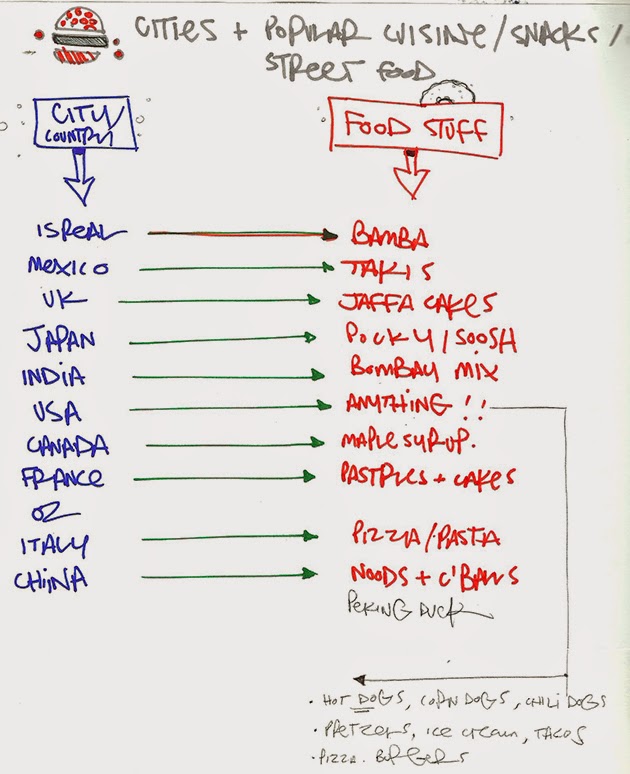 CITIES + POPULAR CUISINE/SNACKS/
STREET FOOD
CITY/
COUNTRY
FOOD STUFF
ISREAL BAMBA
MEXICO TAKIS
UK JAFFA CAKES
JAPAN POCKY/SOOSH
INDIA BOMBAY MIX
USA ANYTHING!!
CANADA MAPLE SYRUP.
FRANCE PASTRIES + CAKES
OZ
ITALY PIZZA/PASTA
CHINA NOODS + C'BALLS
PEKING DUCK
• HOT DOGS, CORN DOGS, CHILI DOGS
• PRETZELS, ICE CREAM, TACOS
• PIZZA. BURGERS